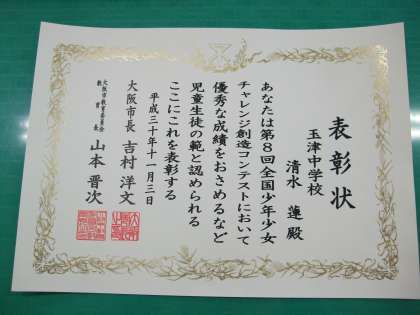 表彰状
玉津中学校
清水 蓮 殿
あなたは第8回全国少年少女
チャレンジ創造コンテストにおいて
優秀な成績をおさめるなど
児童生徒の範と認められる
ここにこれを表彰する
平成三十年十一月三日
大阪市長 吉村 洋文
大阪市教育委員会
教育長 山本 晋次